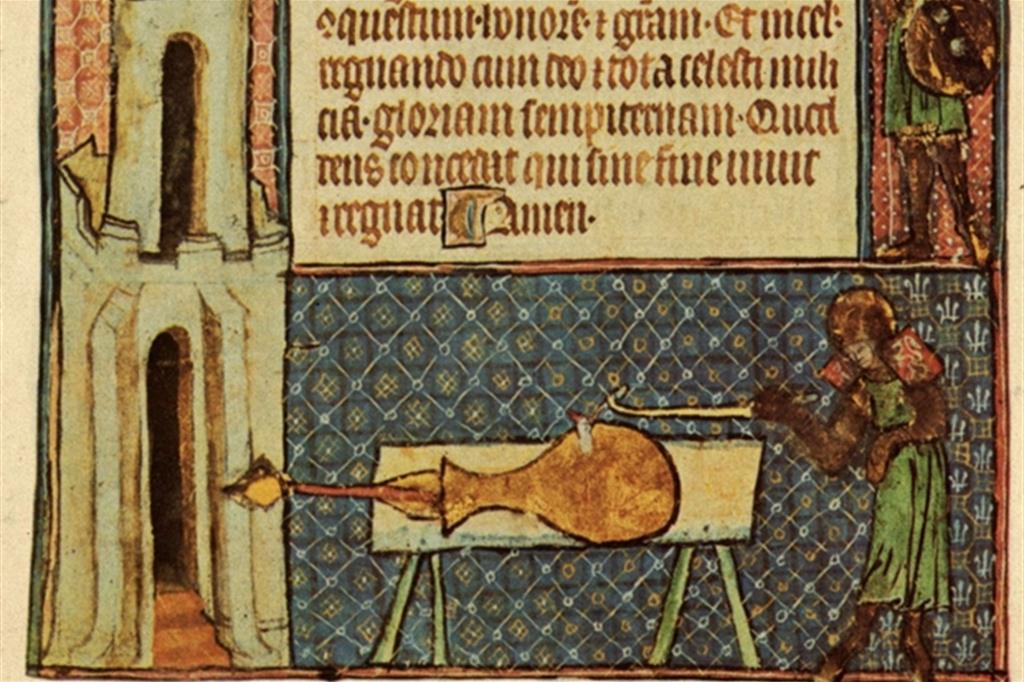 ꝯquestum·honorē·⁊ grām·Et in cel'
regnando cum deo ⁊ tota celesti mili
cia·gloriam sempiternam·Quod
deus concedat qui sine fine uiuit
⁊ regnat Amen·